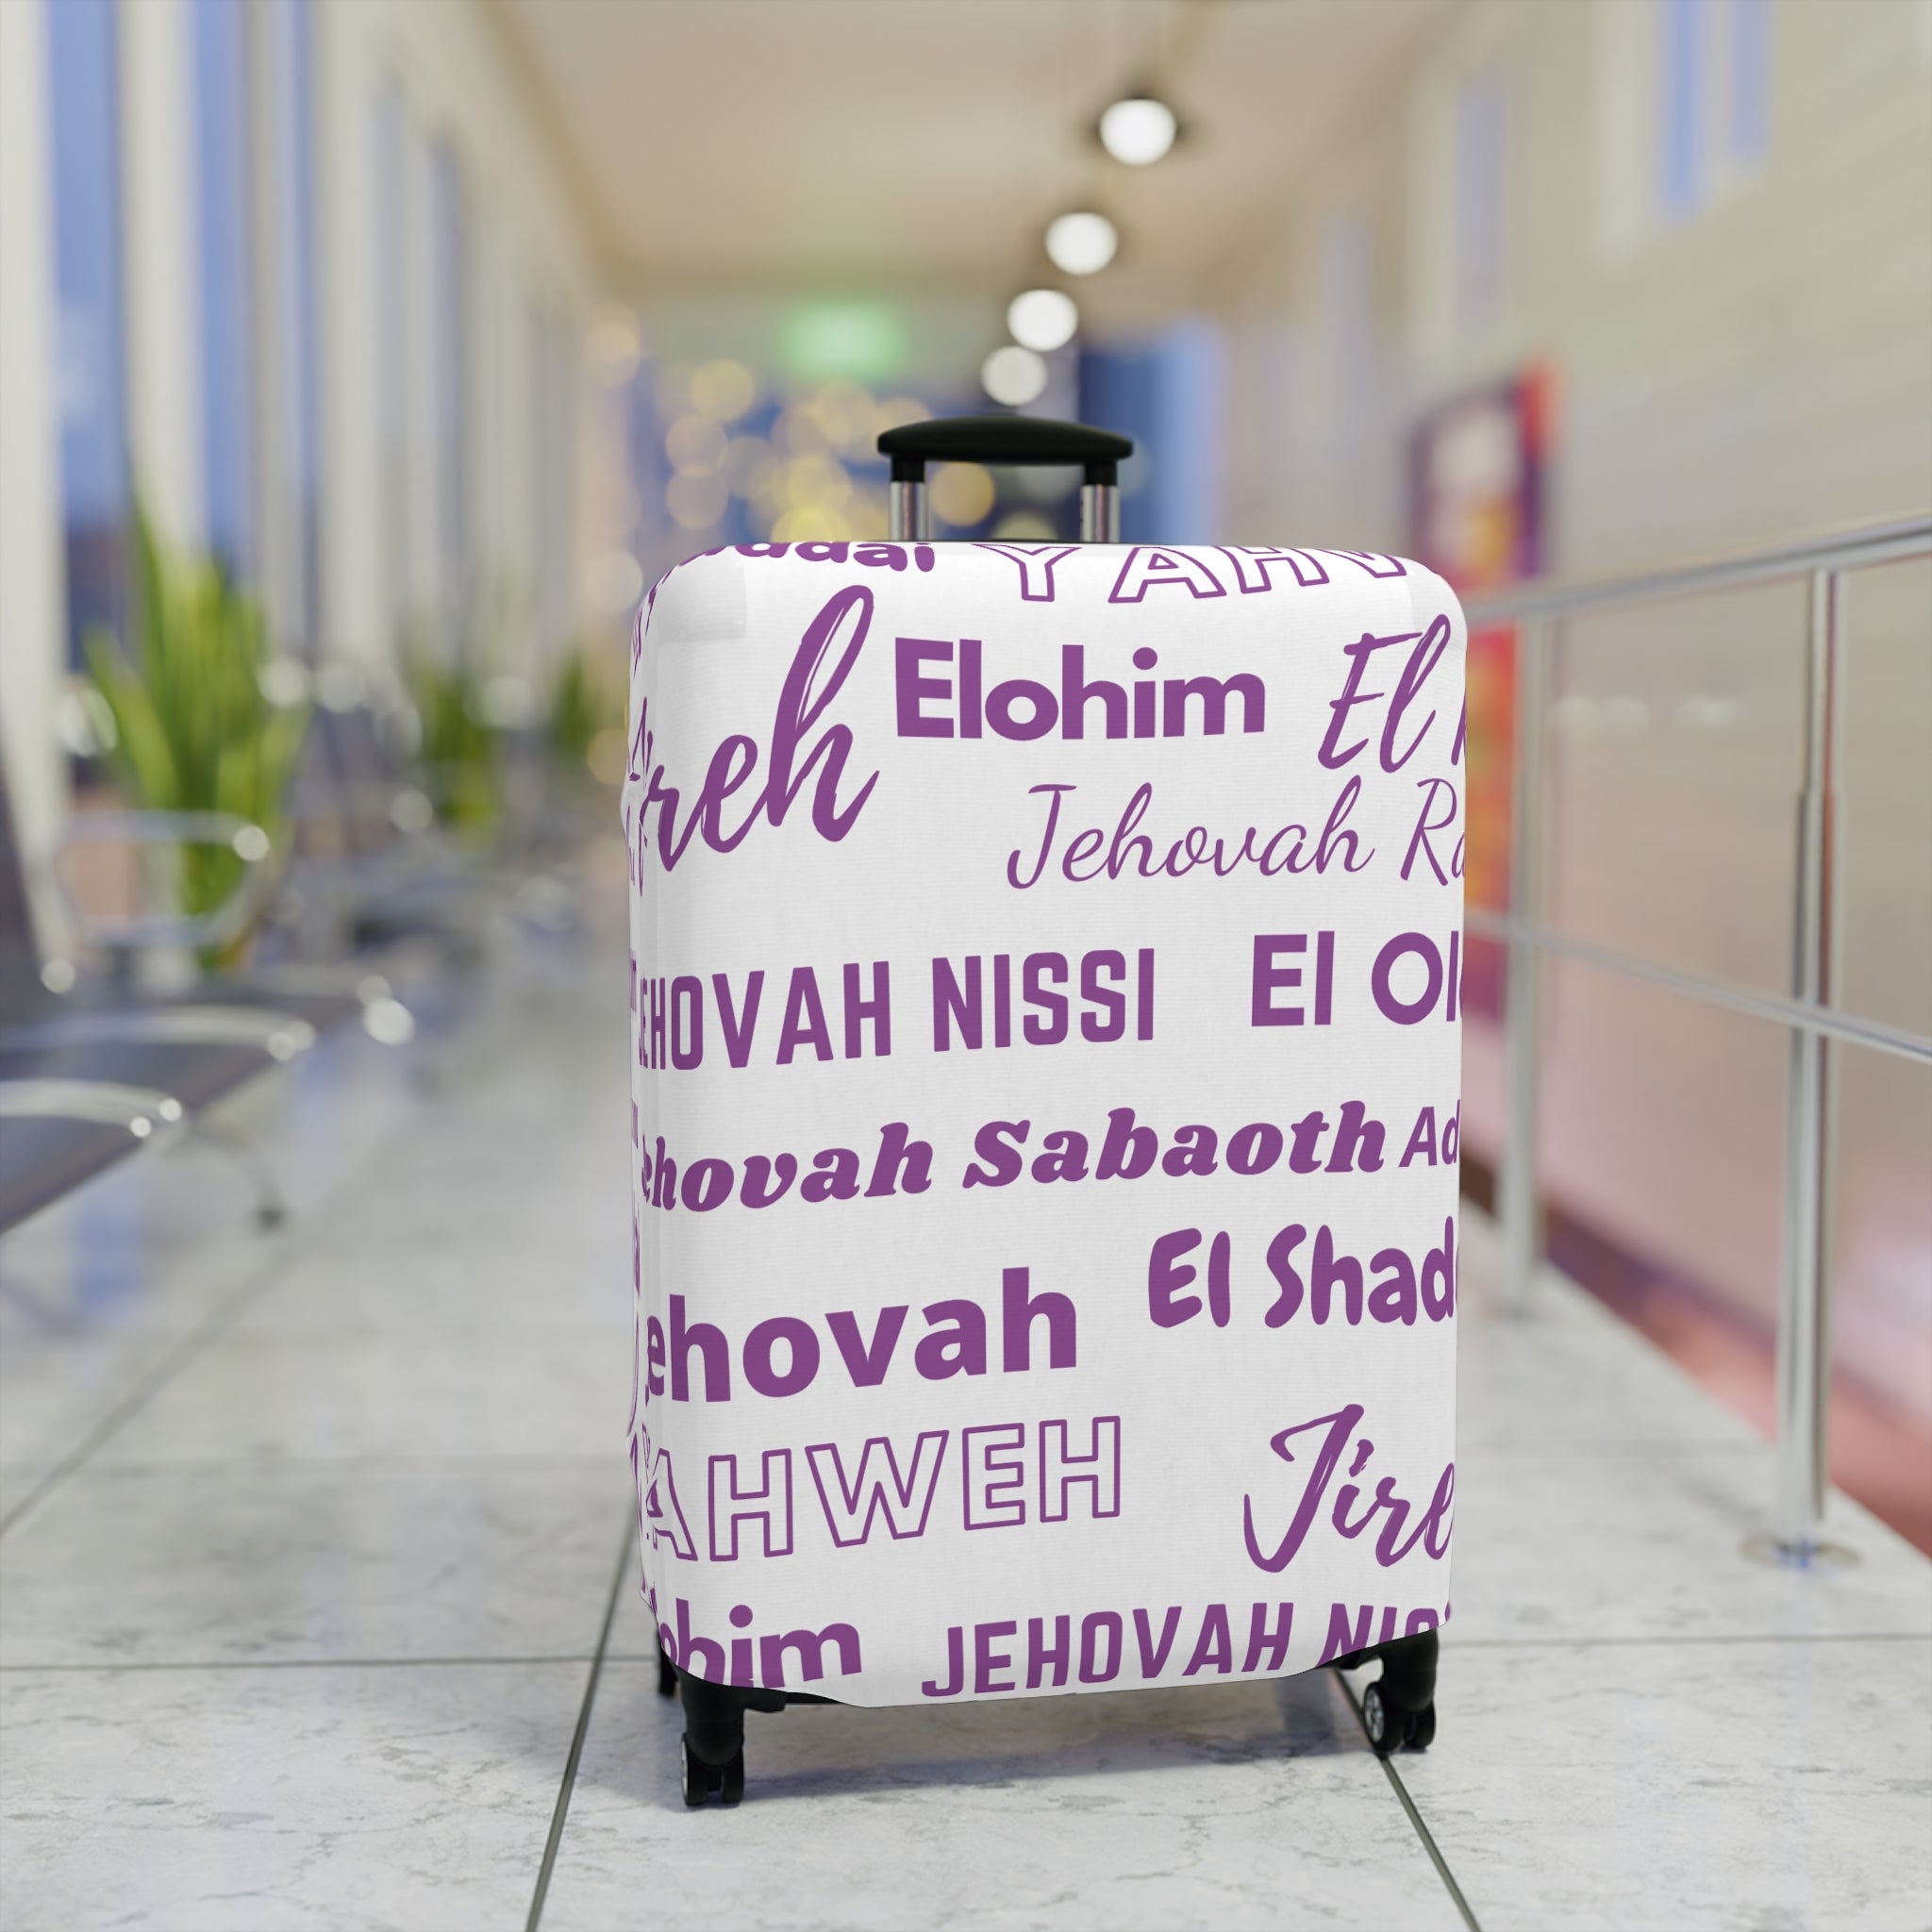 YAHW
Elohim
El
reh
Jehovah Ra
JEHOVAH NISSI
El Ol
Jehovah Sabaoth Ad
El Shad
Jehovah
YAHWEH
Jire
ohim
JEHOVAH NISS